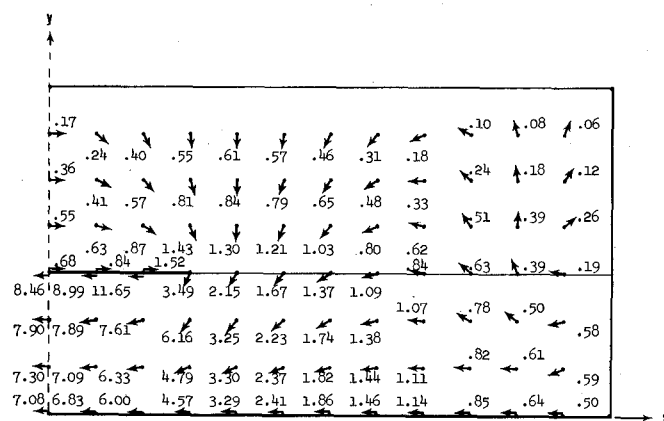 y
.17 .10 .08 .06
.24 .40 .55 .61 .57 .46 .31 .18
.36 .24 .18 .12
.41 .57 .81 .84 .79 .65 .48 .33
.55 .51 .39 .26
.63 .87 1.43 1.30 1.21 1.03 .80 .62
.68 .84 1.52 .84 .63 .39 .19
8.46 8.99 11.65 3.49 2.15 1.67 1.37 1.09
1.07 .78 .50
7.90 7.89 7.61 6.16 3.25 2.23 1.74 1.38 .58
.82 .61
7.30 7.09 6.33 4.79 3.30 2.37 1.82 1.44 1.11 .59
7.08 6.83 6.00 4.57 3.29 2.41 1.86 1.46 1.14 .85 .64 .50